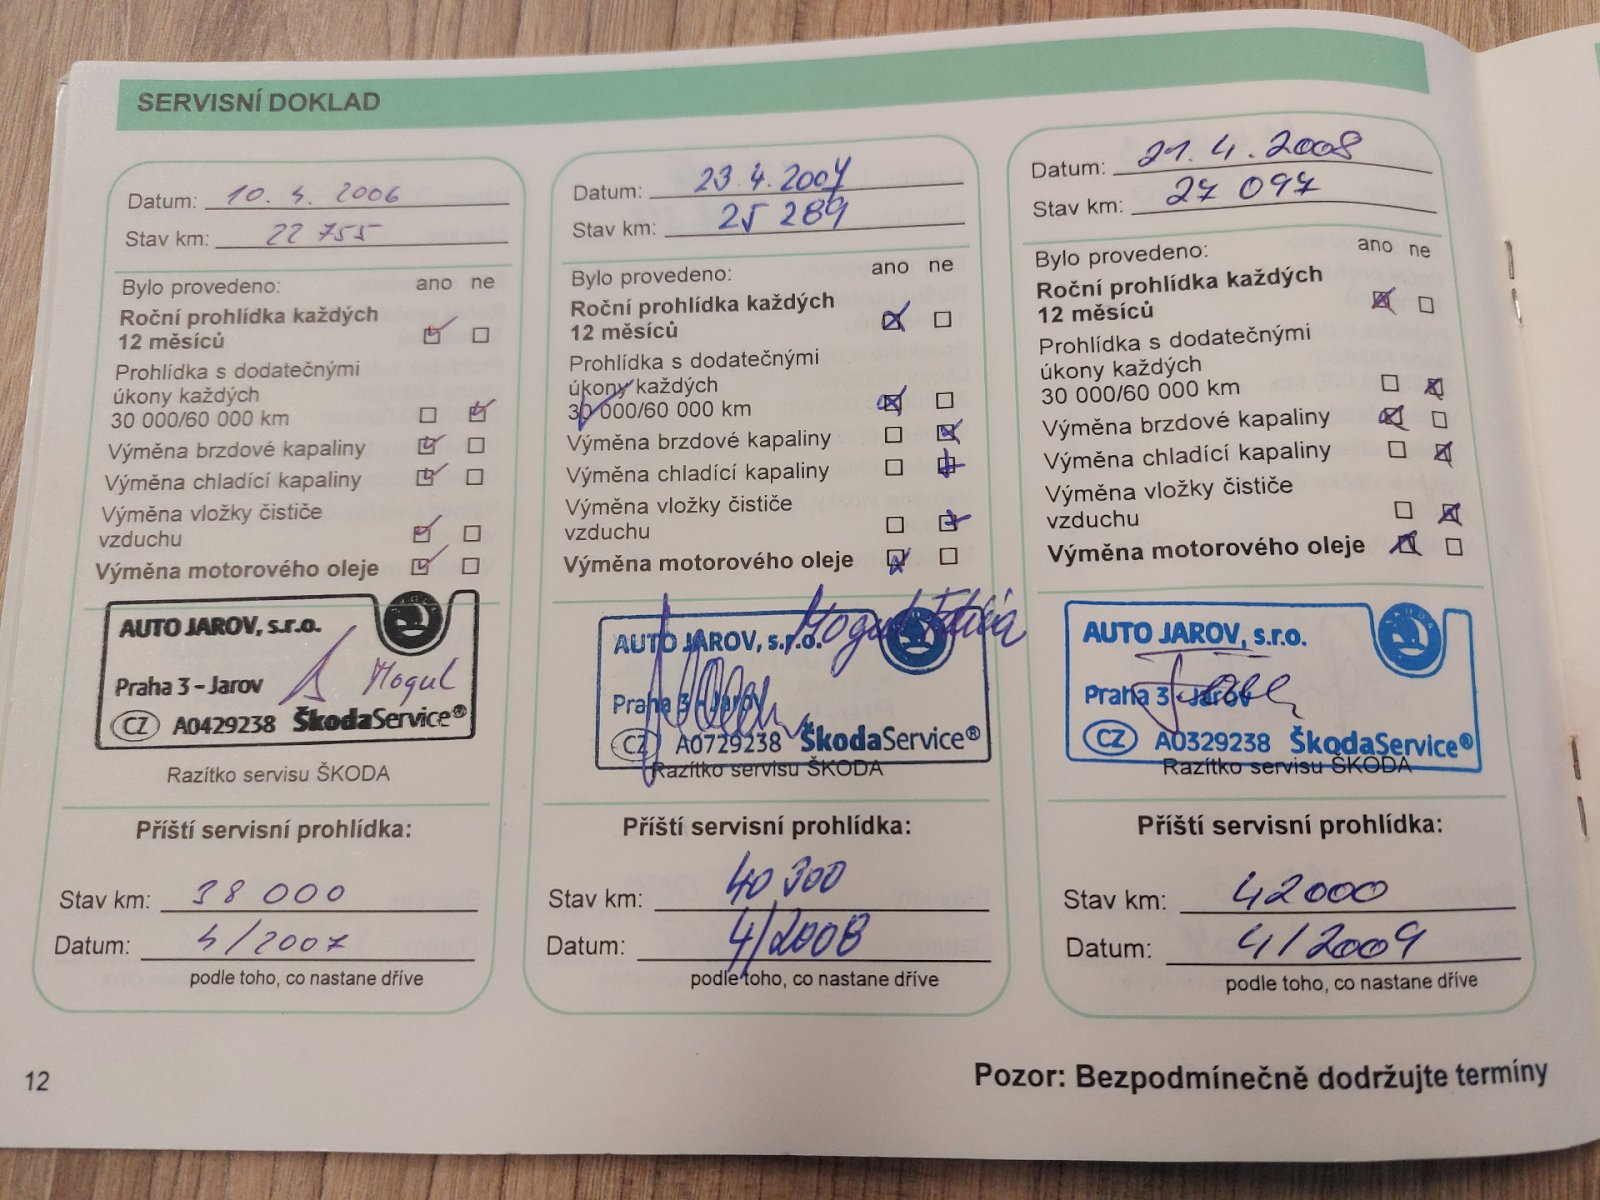 SERVISNÍ DOKLAD
Datum: 10. 4. 2006
Stav km: 22 755
Bylo provedeno: ano ne
Roční prohlídka každých
12 měsíců
Prohlídka s dodatečnými
úkony každých
30 000/60 000 km
Výměna brzdové kapaliny
Výměna chladící kapaliny
Výměna vložky čističe
vzduchu
Výměna motorového oleje
AUTO JAROV, s.r.o.
Praha 3 - Jarov
Mogul
CZ A0429238 ŠkodaService®
Razítko servisu ŠKODA
Příští servisní prohlídka:
Stav km: 38 000
Datum: 4/2007
podle toho, co nastane dříve
Datum: 23.4.2007
Stav km: 25 289
Bylo provedeno: ano ne
Roční prohlídka každých
12 měsíců
Prohlídka s dodatečnými
úkony každých
30 000/60 000 km
Výměna brzdové kapaliny
Výměna chladící kapaliny
Výměna vložky čističe
vzduchu
Výměna motorového oleje
Mogul Felicia
AUTO JAROV, s.r.o.
Praha 3 - Jarov
CZ A0729238 ŠkodaService®
Razítko servisu ŠKODA
Příští servisní prohlídka:
Stav km: 40 300
Datum: 4/2008
podle toho, co nastane dříve
Datum: 21.4.2008
Stav km: 27 097
Bylo provedeno: ano ne
Roční prohlídka každých
12 měsíců
Prohlídka s dodatečnými
úkony každých
30 000/60 000 km
Výměna brzdové kapaliny
Výměna chladící kapaliny
Výměna vložky čističe
vzduchu
Výměna motorového oleje
AUTO JAROV, s.r.o.
Praha 3 - Jarov
CZ A0329238 ŠkodaService®
Razítko servisu ŠKODA
Příští servisní prohlídka:
Stav km: 42000
Datum: 4/2009
podle toho, co nastane dříve
12
Pozor: Bezpodmínečně dodržujte termíny